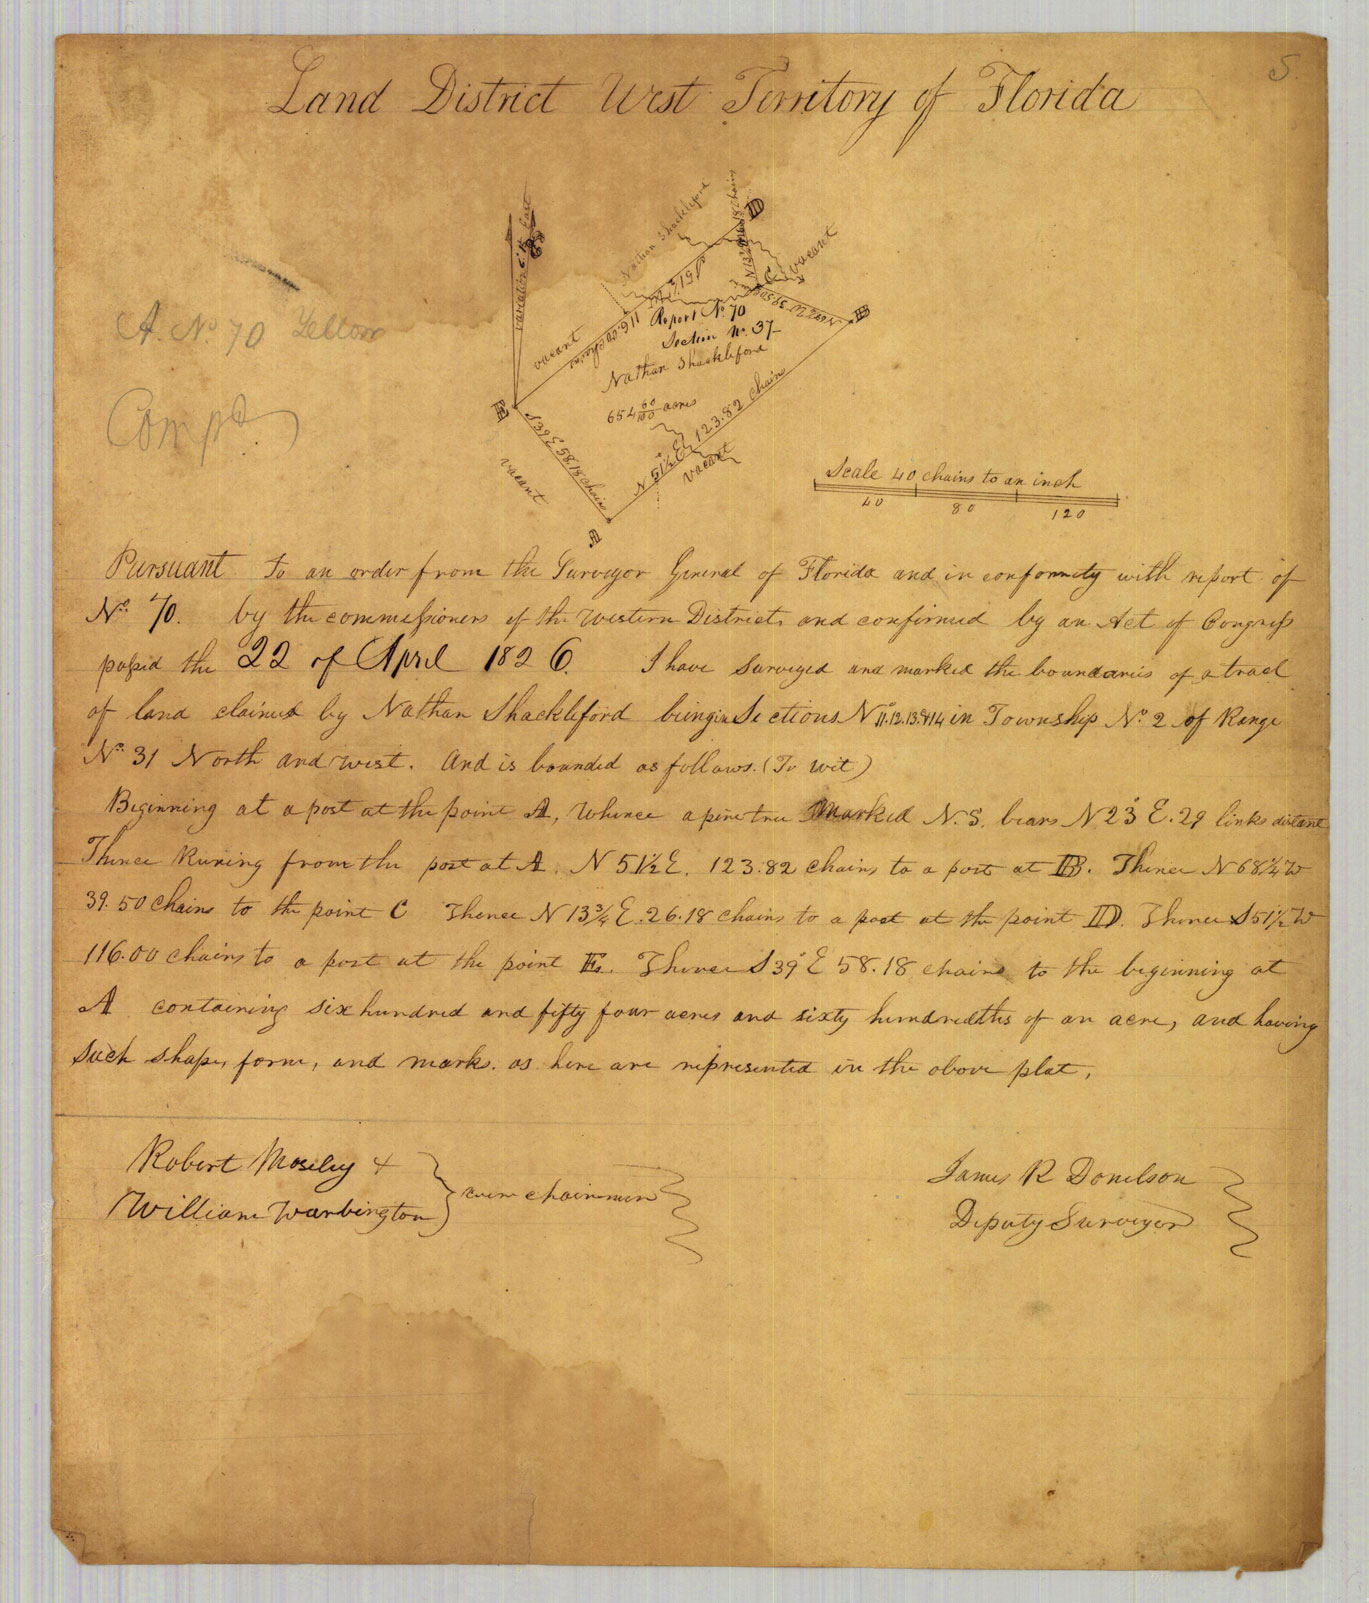 S.
Land District West Territory of Florida
Nathan Shackleford
vacant
vacant
D
C
B
E
A
S 51½ W 116.00 chains
Report No. 70
Section No. 37
Nathan Shackleford
654 60/100 acres
S 39 E 58.18 chains
N 51½ E 123.82 chain
vacant
vacant
A. No. 70
Compd.
Scale 40 chains to an inch
40 80 120
Pursuant to an order from the Surveyor General of Florida and in conformity with report of
No. 70. by the commissioners of the Western District, and confirmed by an Act of Congress
passed the 22 of April 1826. I have Surveyed and marked the boundaries of a tract
of land claimed by Nathan Shackleford being in Sections No 11.12.13.&14 in Township No. 2 of Range
No. 31 North and west. And is bounded as follows. (To wit)
Beginning at a post at the point A, Whence a pine tree Marked N.S. bears N 23° E. 29 links distant
Thence Runing from the post at A. N 51½ E. 123.82 chains to a post at B. Thence N 68¼ W
39.50 chains to the point C Thence N 13¾ E. 26.18 chains to a post at the point D. Thence S 51½ W
116.00 chains to a post at the point E. Thence S 39° E 58.18 chains to the beginning at
A containing six hundred and fifty four acres and sixty hundredths of an acre, and having
Such shape, form, and mark. as here are represented in the above plat.
Robert Mosely &
William Warbington } were chainmen
James R Donelson
Deputy Surveyor